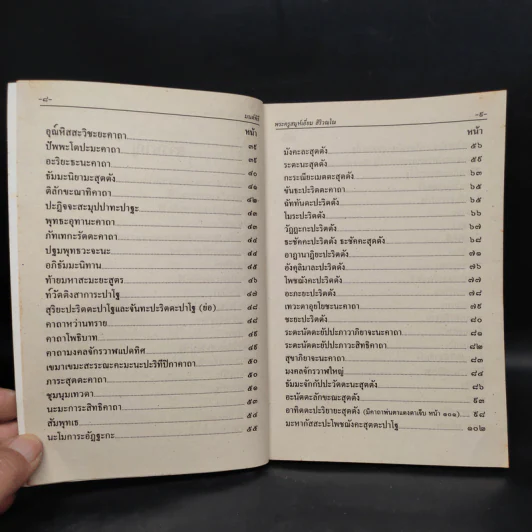 -๘-
มนต์พิธี
หน้า
อุณ์หิสสะวิชะยะคาถา ๓๙
ปัพพะโตปะมะคาถา ๓๙
อะริยะธะนะคาถา ๔๐
ธัมมะนิยามะสุตตัง ๔๑
ติลักขะณาทิคาถา ๔๒
ปะฏิจจะสะมุปปาทะปาฐะ ๔๓
พุทธะอุทานะคาถา ๔๓
ภัทเทกะรัตตะคาถา ๔๔
ปฐมพุทธวะจะนะ ๔๔
อภิธัมมะนิทาน ๔๕
ท้ายมหาสะมะยะสูตร ๔๗
ท์วัตติงสาการะปาโฐ ๔๗
สุริยะปะริตตะปาโฐและจันทะปะริตตะปาโฐ (ย่อ) ๔๘
คาถาหว่านทราย ๔๘
คาถาโพธิบาท ๔๙
คาถามงคลจักรวาฬแปดทิศ ๔๙
เขมาเขมะสะระณะคะมะนะปะริทีปิกาคาถา ๕๐
ภาระสุตตะคาถา ๕๐
ชุมนุมเทวดา ๕๑
นะมะการะสิทธิคาถา ๕๓
สัมพุทเธ ๕๔
นะโมการะอัฏฐะกะ ๕๕
พระครูสมุห์เอี่ยม สิริวณฺโณ
-๕-
หน้า
มังคะละสุตตัง ๕๖
ระตะนะสุตตัง ๕๙
กะระณียะเมตตะสุตตัง ๖๓
ขันธะปะริตตะคาถา ๖๕
ฉัททันตะปะริตตัง ๖๕
โมระปะริตตัง ๖๖
วัฏฏะกะปะริตตัง ๖๗
ธะชัคคะปะริตตัง ธะชัคคะสุตตัง ๖๘
อาฏานาฏิยะปะริตตัง ๗๑
อังคุลิมาละปะริตตัง ๗๖
โพชฌังคะปะริตตัง ๗๖
อะภะยะปะริตตัง ๗๘
เทวะตาอุยโยชะนะคาถา ๗๙
ชะยะปะริตตัง ๘๐
ระตะนัตตะยัปปะภาวาภิยาจะนะคาถา ๘๑
ระตะนัตตะยัปปะภาวะสิทธิคาถา ๘๒
สุขาภิยาจะนะคาถา ๘๓
มงคลจักรวาฬใหญ่ ๘๔
ธัมมะจักกัปปะวัตตะนะสุตตัง ๘๖
อะนัตตะลักขะณะสุตตัง ๙๓
อาทิตตะปะริยายะสุตตัง (มีคาถาพ่นตาแดงตาเจ็บ หน้า ๑๐๑) ๙๘
มะหากัสสะปะโพชฌังคะสุตตะปาโฐ ๑๐๒